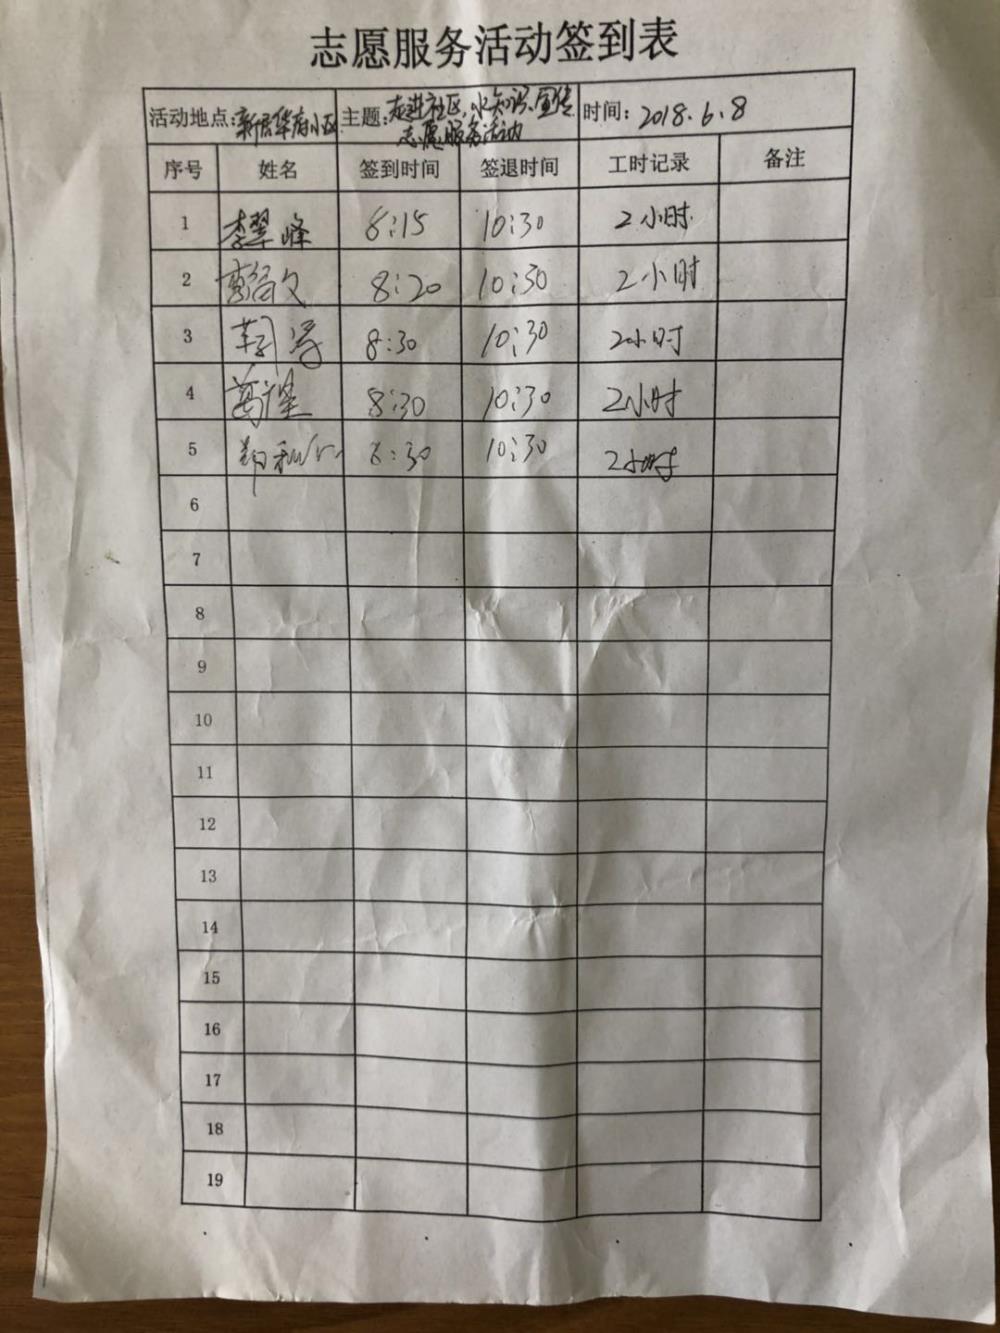 志愿服务活动签到表
活动地点: 新居华府小区 主题: 走进社区,水知识宣传 时间: 2018.6.8
志愿服务活动
序号 姓名 签到时间 签退时间 工时记录 备注
1 李翠峰 8:15 10:30 2小时
2 8:20 10:30 2小时
3 8:30 10:30 2小时
4 8:30 10:30 2小时
5 8:30 10:30 2小时
6
7
8
9
10
11
12
13
14
15
16
17
18
19